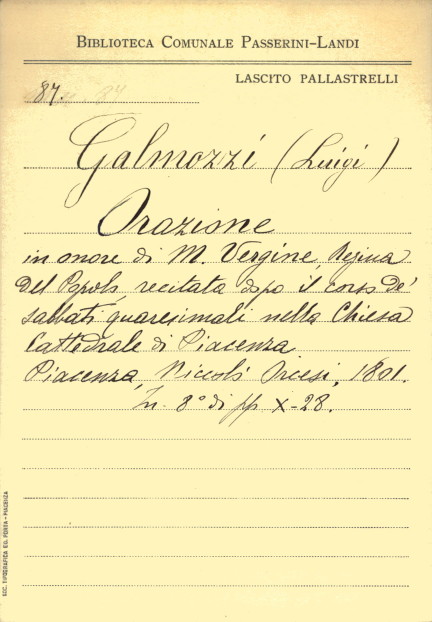 BIBLIOTECA COMUNALE PASSERINI-LANDI
LASCITO PALLASTRELLI
87.
Galmozzi (Luigi)
Orazione
in onore di M. Vergine, Regina
del Popolo, recitata dopo il corso de'
sabbati quaresimali nella Chiesa
Cattedrale di Piacenza
Piacenza, Niccolò Orcesi, 1801.
In 8° di pp X-28.
SOC. TIPOGRAFICA ED. PORTA - PIACENZA